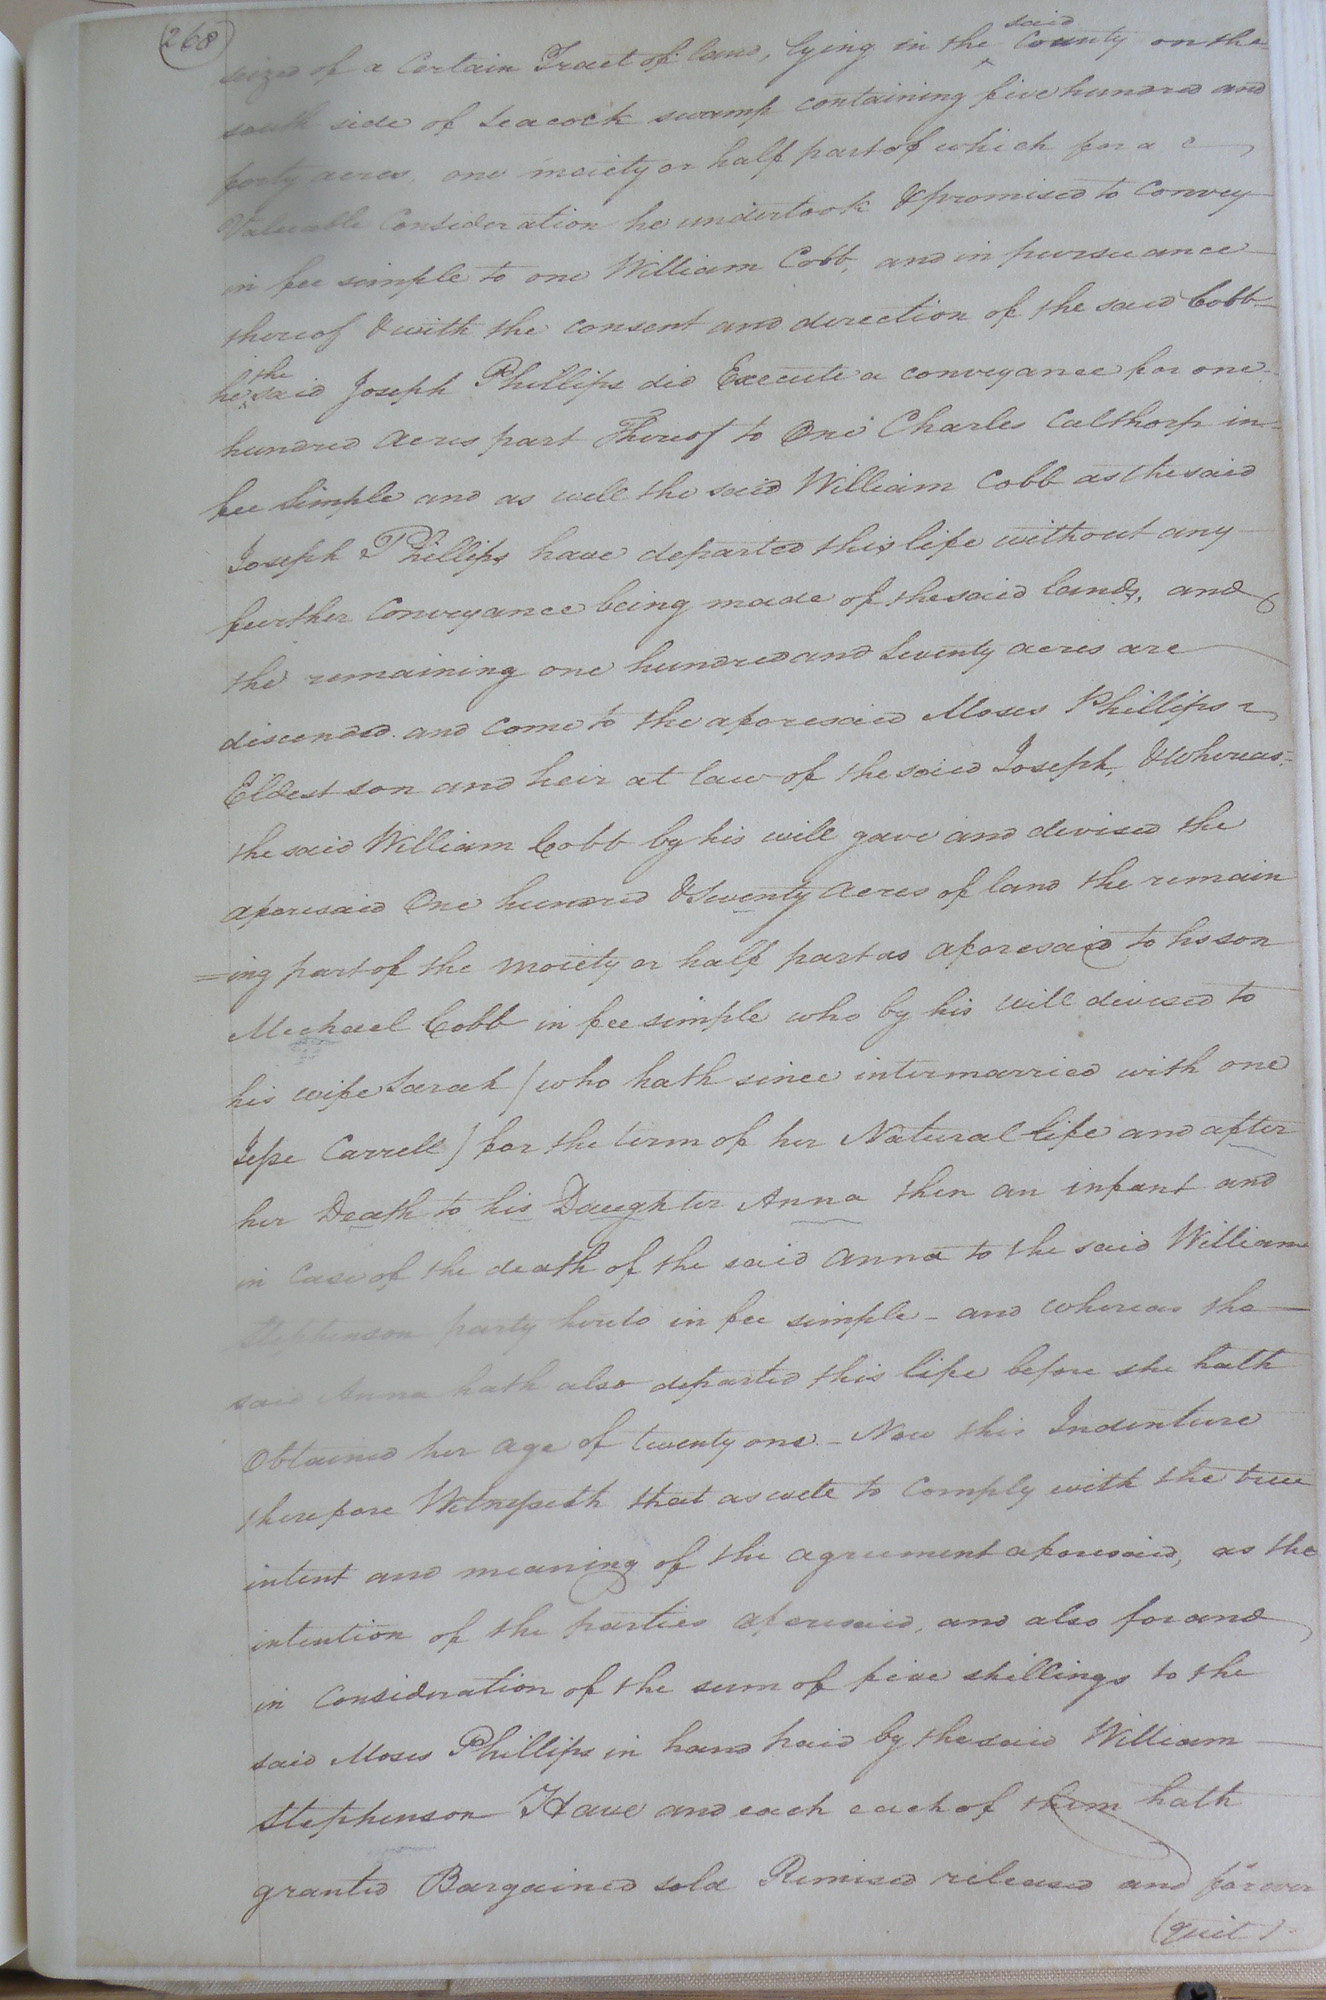 268
seized of a Certain Tract of land, lying in the said County on the
south side of Seacock swamp containing five hundred and
forty acres, one moiety or half part of which for a
Valuable Consideration he undertook & promised to Convey
in fee simple to one William Cobb, and in pursuance
thereof & with the consent and direction of the said Cobb
he the said Joseph Phillips did Execute a conveyance for one
hundred acres part Thereof to One Charles Calthorp in
fee simple and as well the said William Cobb as the said
Joseph Phillips have departed this life without any
further Conveyance being made of the said lands, and
the remaining one hundred and Seventy acres are
discended and come to the aforesaid Moses Phillips
Eldest son and heir at law of the said Joseph, & Whereas
the said William Cobb by his will gave and devised the
aforesaid One hundred & Seventy acres of land the remain
=ing part of the moiety or half part as aforesaid to his son
Michael Cobb in fee simple who by his will devised to
his wife Sarah (who hath since intermarried with one
Jesse Carrell) for the term of her Natural life and after
her Death to his Daughter Anna then an infant and
in Case of the death of the said Anna to the said William
Stephenson party hereto in fee simple - and whereas the
said Anna hath also departed this life before she hath
Obtained her age of twenty one. - Now this Indenture
therefore Witnesseth that as well to Comply with the true
intent and meaning of the agreement aforesaid, as the
intention of the parties aforesaid, and also for and
in Consideration of the sum of five shillings to the
said Moses Phillips in hand paid by the said William
Stephenson Have and each each of them hath
granted Bargained sold Remised released and forever
(quit)